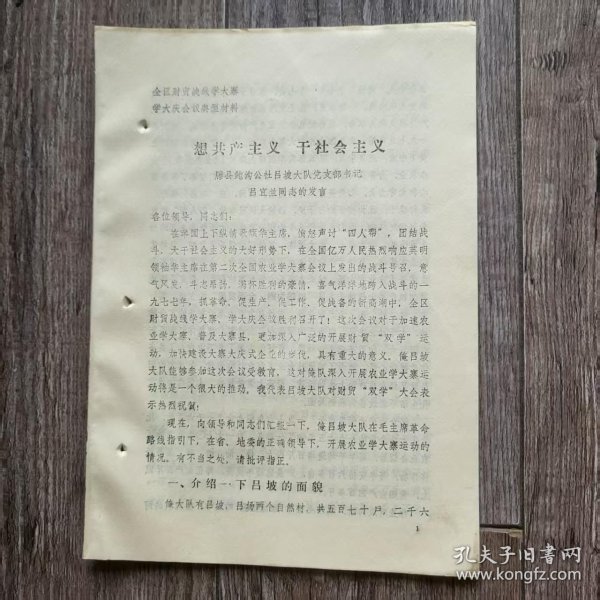 全区财贸战线学大寨
学大庆会议典型材料
想共产主义 干社会主义
县鲍沟公社吕坡大队党支部书记
吕宜兰同志的发言
各位领导，同志们：
在举国上下纵情歌颂华主席，愤怒声讨“四人帮”，团结战
斗，大干社会主义的大好形势下，在全国亿万人民热烈响应英明
领袖华主席在第二次全国农业学大寨会议上发出的战斗号召，意
气风发，斗志昂扬，满怀胜利的豪情，喜气洋洋地跨入战斗的一
九七七年，抓革命，促生产，促工作，促战备的新高潮中，全区
财贸战线学大寨、学大庆会议胜利召开了！这次会议对于加速农
业学大寨、普及大寨县，更加深入广泛的开展财贸“双学”运
动，加快建设大寨大庆式企业的步伐，具有重大的意义。俺吕坡
大队能够参加这次会议受教育，这对俺深入开展农业学大寨运
动将是一个很大的推动。我代表吕坡大队对财贸“双学”大会表
示热烈祝贺！
现在，向领导和同志们汇报一下，俺吕坡大队在毛主席革命
路线指引下，在省、地委的正确领导下，开展农业学大寨运动的
情况。有不当之处，请批评指正。
一、介绍一下吕坡的面貌
俺大队有吕坡、吕杨两个自然村，共五百七十户，二千六
1
孔夫子旧书网
www.kongfz.com